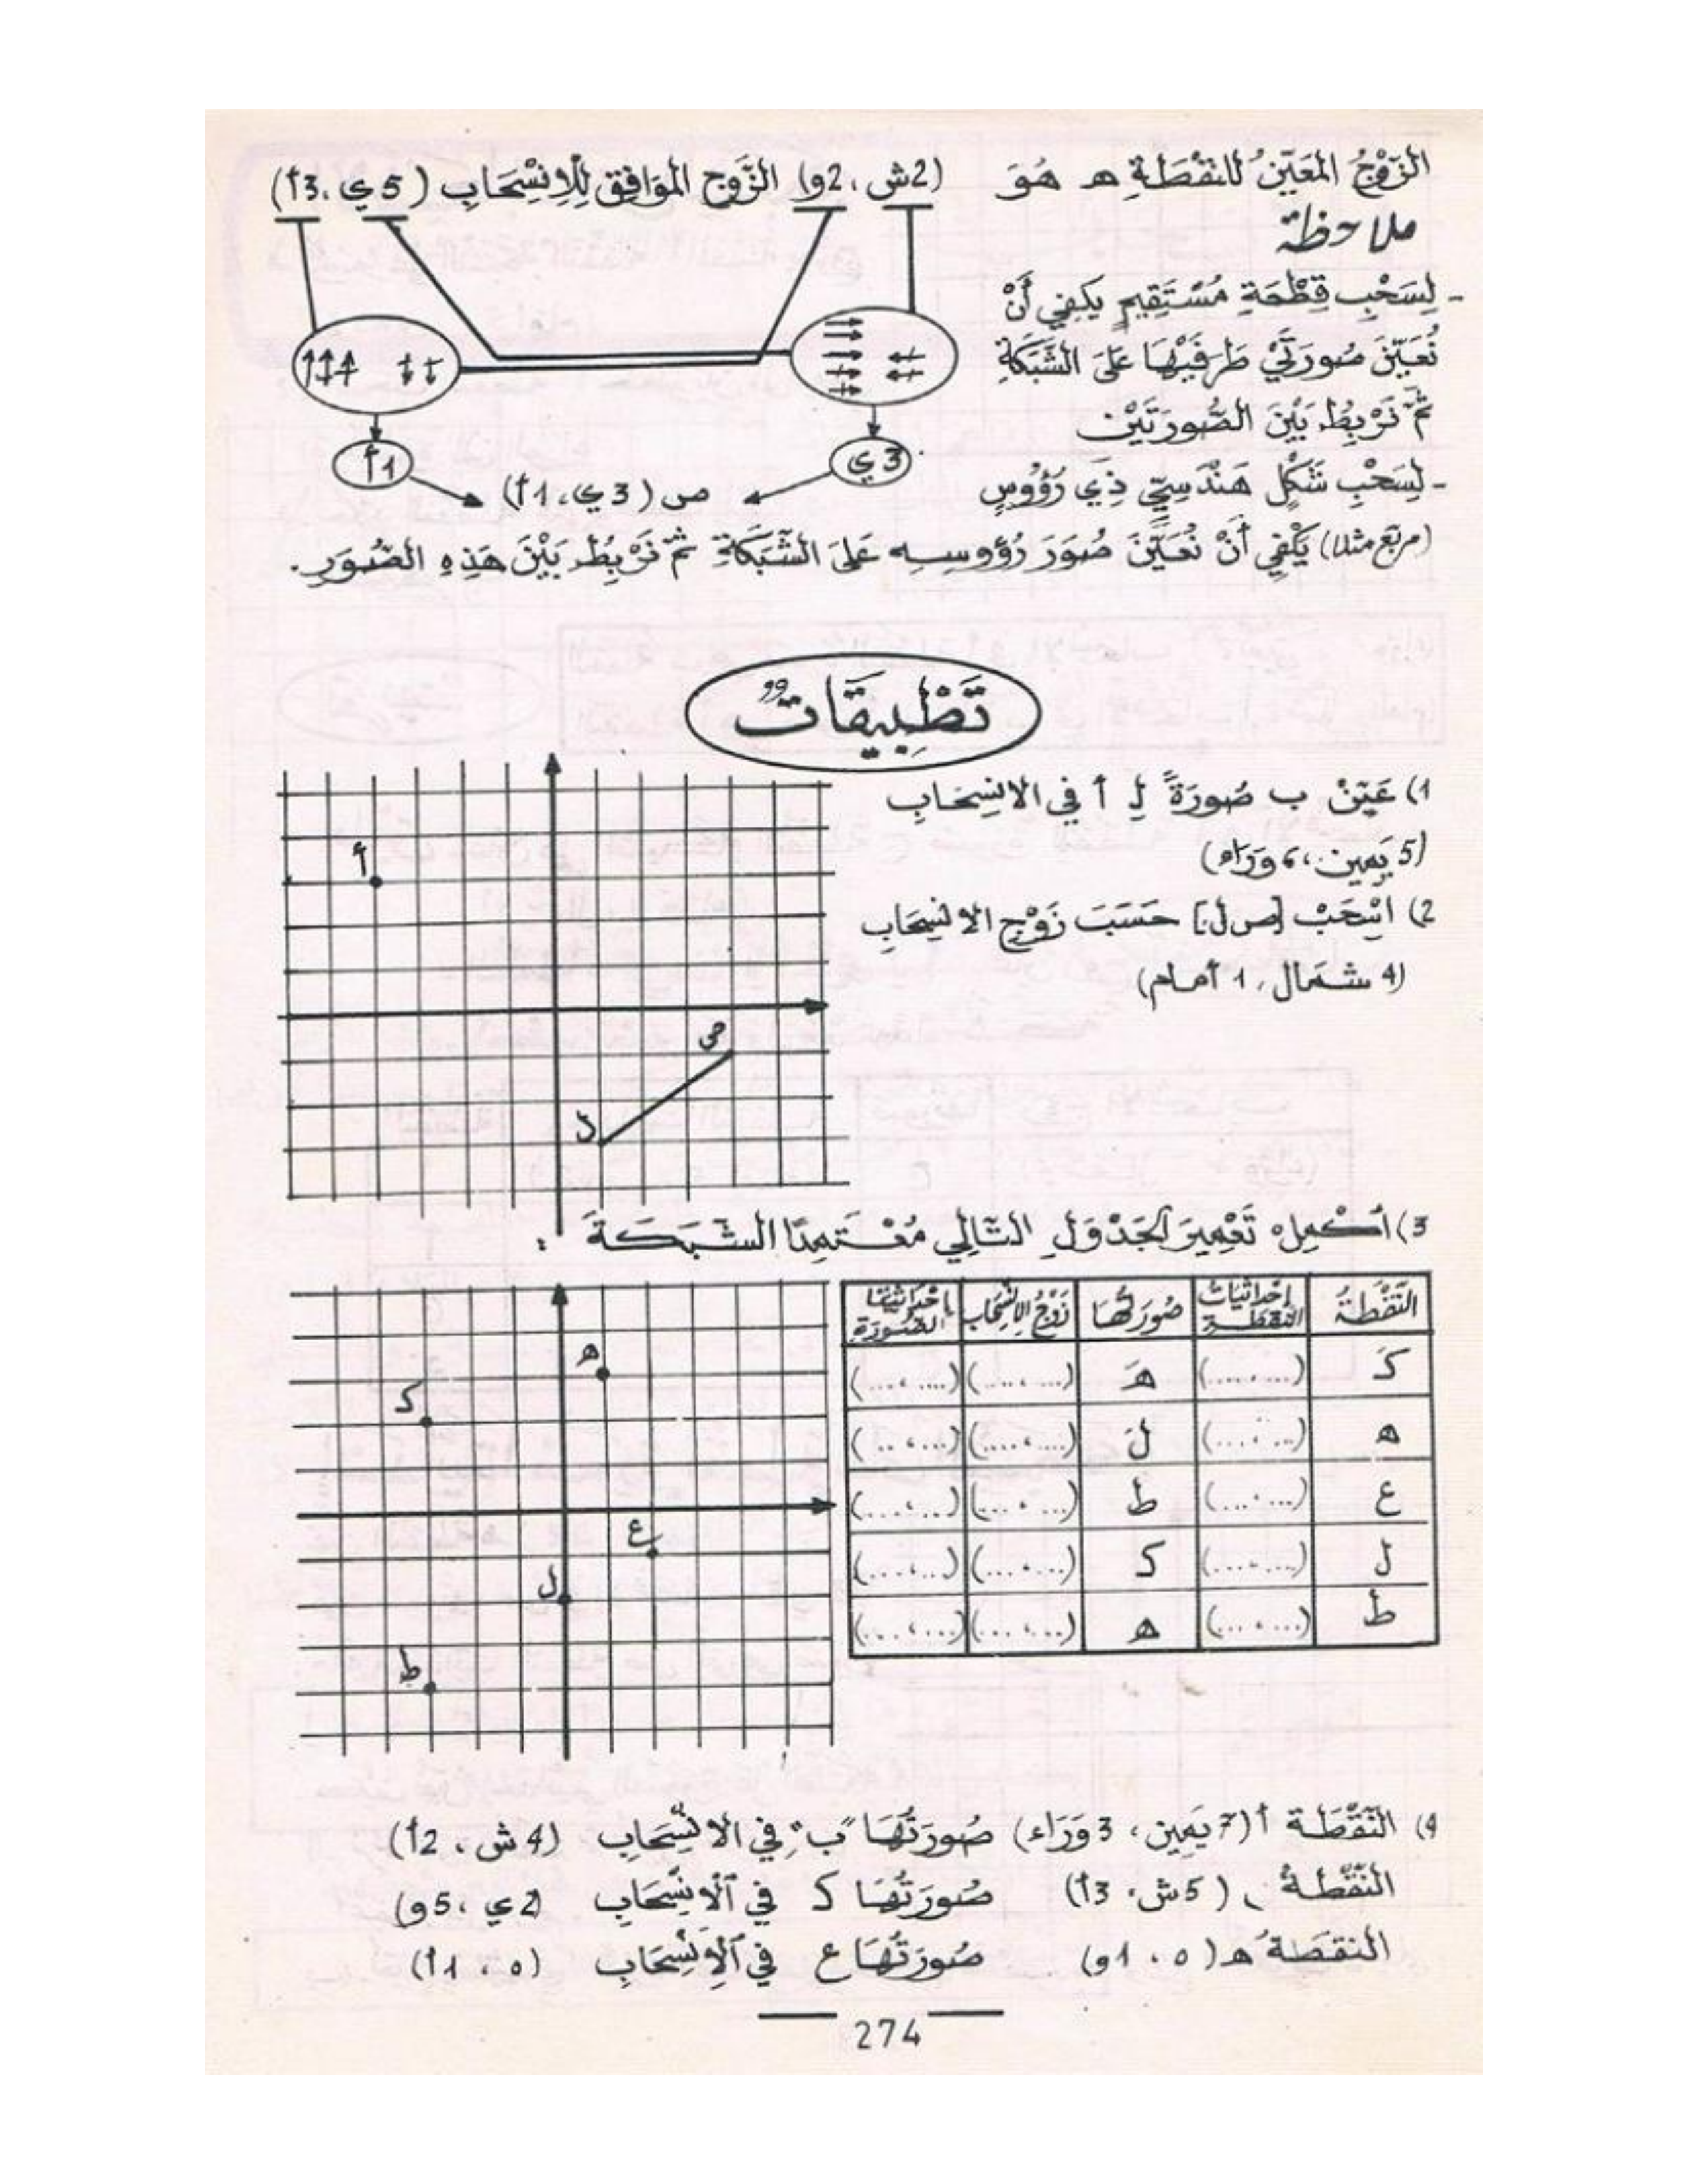 الزَّوْجُ المُعَيِّنُ للنُقْطَةِ ھ هُوَ (2ش ، 2و) الزَّوج المُوَافِق لِلاِنْسِحَابِ (5 ي ، 3أ)
ملاحظة
- لِسَحْبِ قِطْعَةِ مُسْتَقِيمٍ يَكْفِي أَنْ
نُعَيِّنَ صُورَتَيْ طَرَفَيْهَا عَلَى الشَّبَكَةِ
ثُمَّ نَرْبِطُ بَيْنَ الصُّورَتَيْن
- لِسَحْبِ شَكْلٍ هَنْدَسِيٍّ ذِي رُؤُوسٍ
(مربّع مثلا) يَكْفِي أَنْ نُعَيِّنَ صُوَرَ رُؤُوسِهِ عَلَى الشَّبَكَةِ ثُمَّ نَرْبِطُ بَيْنَ هَذِهِ الصُّوَرِ.
1أ
3 ي
ص (3 ي ، 1أ)
تَطْبِيقَاتٌ
1) عَيِّنْ ب صُورَةً لِـ أ في الانْسِحَابِ
(5 يَمِين ، 6 وَرَاء)
2) اسْحَبْ [ص ل] حَسَبَ زَوْجِ الانْسِحَابِ
(4 شمَال ، 1 أمام)
أ
ص
ل
3) أكْمِلْ تَعْمِيرَ الجَدْوَلِ التَّالِي مُعْتَمِدًا الشَّبَكَةَ :
النُّقْطَةُ إحْدَاثِيَاتُ النقطة صُورَتُهَا زَوْجُ الاِنْسِحَابِ إحْدَاثِيَّتَا الصُّورَةِ
كـ (.... ، ....) هَـ (.... ، ....) (.... ، ....)
ھ (.... ، ....) لَ (.... ، ....) (.... ، ....)
ع (.... ، ....) ط (.... ، ....) (.... ، ....)
ل (.... ، ....) كـ (.... ، ....) (.... ، ....)
ط (.... ، ....) ھ (.... ، ....) (.... ، ....)
ھ
كـ
ع
ل
ط
4) النُّقْطَة أ (7 يَمِين ، 3 وَرَاء) صُورَتُهَا "ب" فِي الانْسِحَابِ (4 ش ، 2أ)
النُّقْطَةُ (5 ش ، 3أ) صُورَتُهَا كـ فِي الاِنْسِحَابِ (2 ي ، 5 و)
النقطَةُ ھ (0 ، 1و) صُورَتُهَا ع فِي الاِنْسِحَابِ (0 ، 1أ)
274